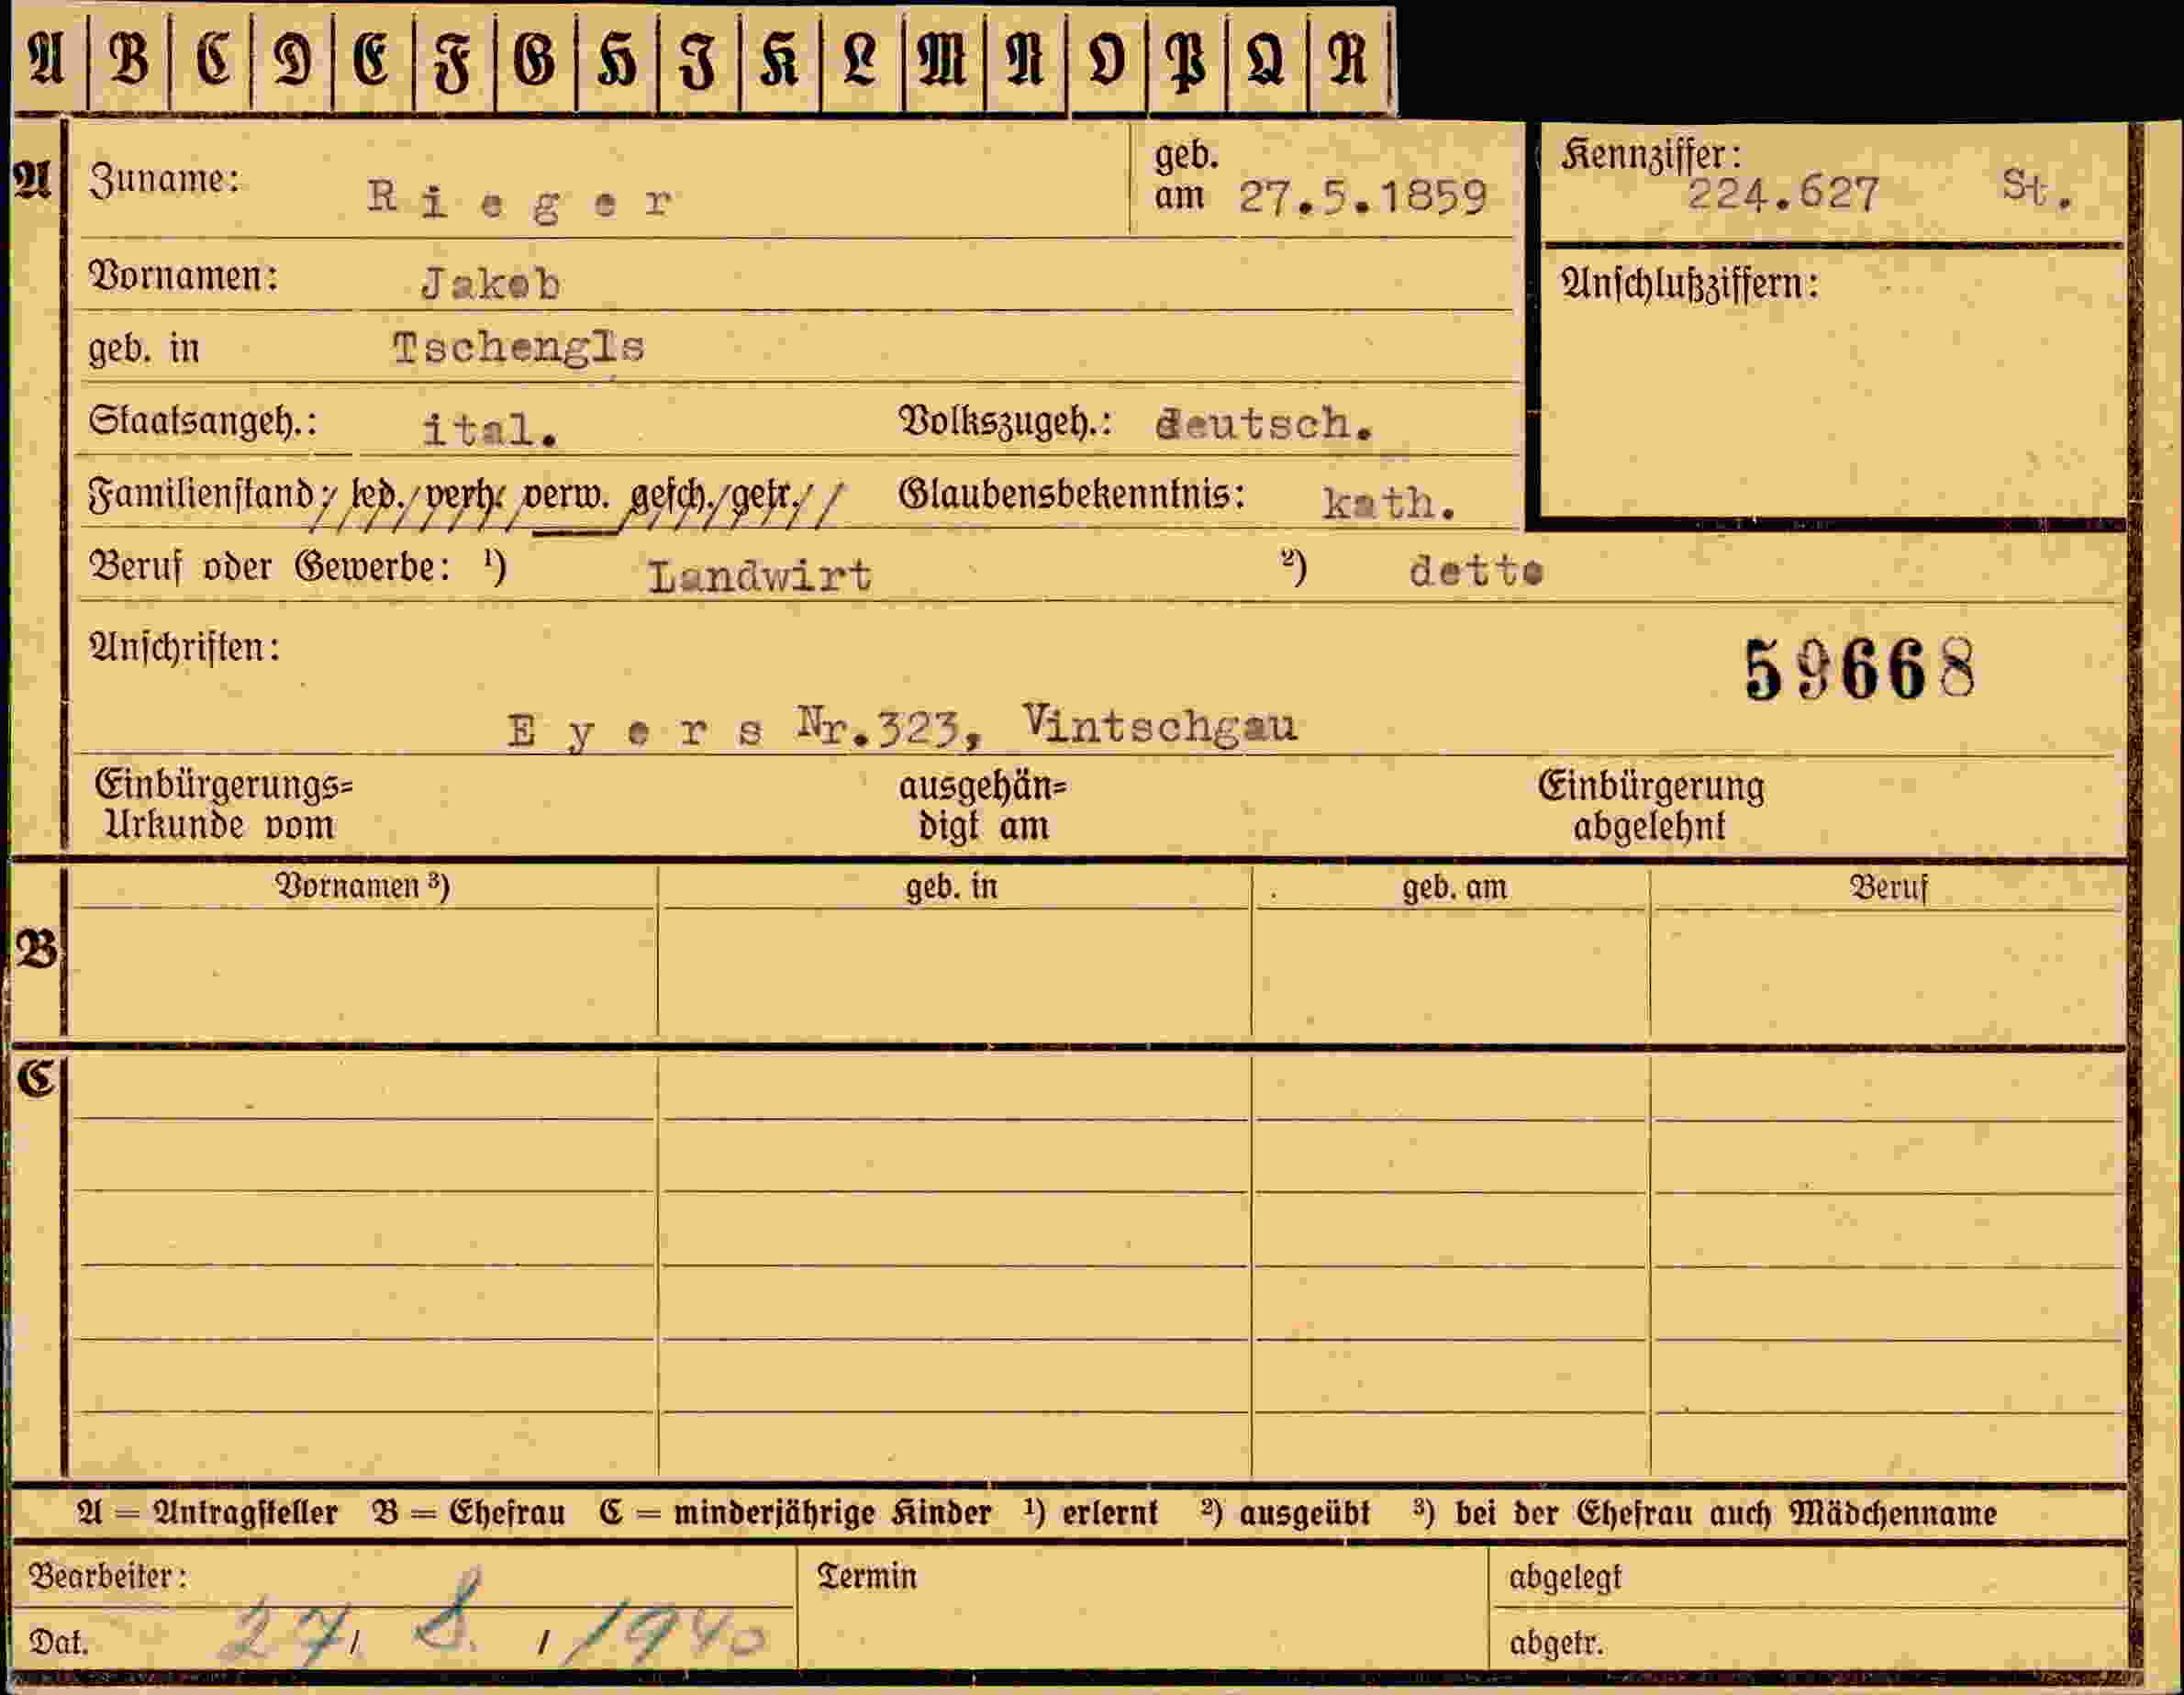 A B C D E F G H I K L M N O P Q R
A Zuname: Rieger geb. am 27.5.1859 Kennziffer: 224.627 St.
Vornamen: Jakob Anschlußziffern:
geb. in Tschengls
Staatsangeh.: ital. Volkszugeh.: deutsch.
Familienstand: led. verh. verw. gesch. getr. Glaubensbekenntnis: kath.
Beruf oder Gewerbe: ¹) Landwirt ²) detto
Anschriften: 59668
Eyers Nr.323, Vintschgau
Einbürgerungs= ausgehän= Einbürgerung
Urkunde vom digt am abgelehnt
Vornamen ³) geb. in geb. am Beruf
B
C
A = Antragsteller B = Ehefrau C = minderjährige Kinder ¹) erlernt ²) ausgeübt ³) bei der Ehefrau auch Mädchenname
Bearbeiter: Termin abgelegt
Dat. 27/ 8. / 1940 abgetr.